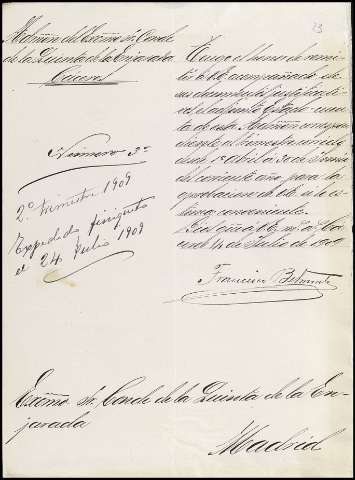 13
Admón del Excmo Sr. Conde
de la Quinta de la Enjarada
Cáceres
Número 3º
2º trimestre 1909
Expedido finiquito
el 24 Julio 1909
Tengo el honor de remi-
tir á V.E. acompañado de
sus documentos justificati-
vos el adjunto Extracto-cuen-
ta de esta Admón correspon-
diente al trimestre vencido
desde 1º Abril á 30 de Junio
del corriente año para la
aprobacion de V.E. si lo es-
tima conveniente.
Dios gúe á V.E. m. a.
14 de Julio de 1909
Francisco Belmonte
Excmo Sr. Conde de la Quinta de la En-
jarada
Madrid